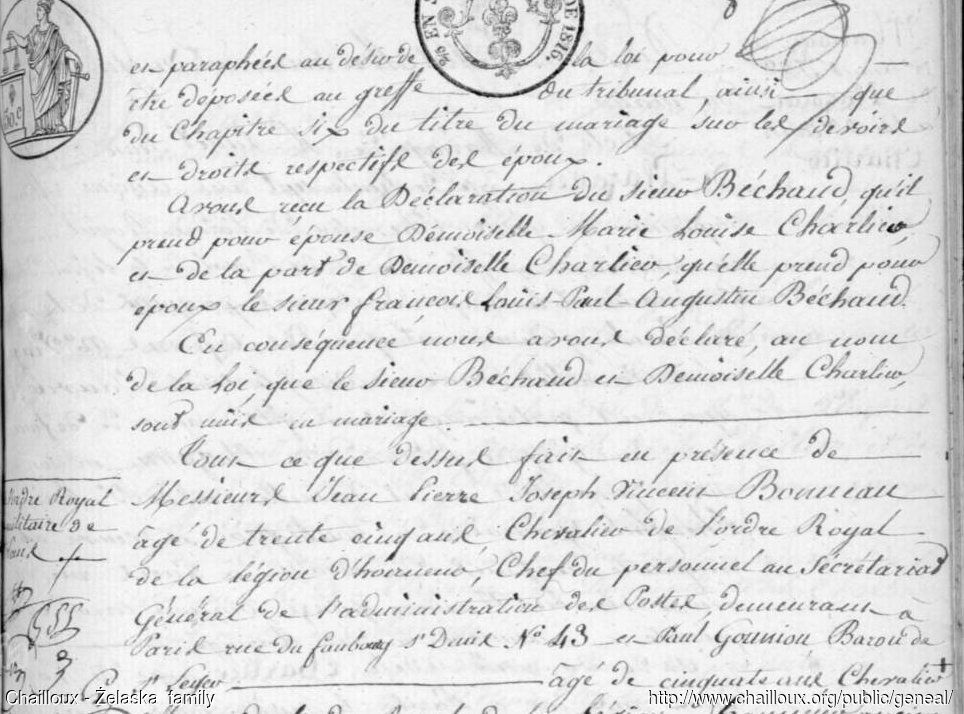 DE 1816.
et paraphées au désir de la loi pour
être déposées au greffe du tribunal, ainsi que
du Chapitre six du titre du mariage sur les devoirs
et droits respectifs des époux.
Avons reçu la Déclaration du sieur Béchaud, qu'il
prend pour épouse Demoiselle Marie Louise Charlieu,
et de la part de Demoiselle Charlieu, qu'elle prend pour
époux le sieur françois Louis Paul Augustin Béchaud.
En conséquence nous avons déclaré, au nom
de la Loi, que le sieur Béchaud et Demoiselle Charlieu,
sont unis en mariage.
Tout ce que dessus fait en présence de
Messieurs Jean Pierre Joseph Vincent Bonneau
âgé de trente cinq ans Chevalier de l'ordre Royal
de la légion d'honneur, Chef du personnel au Secrétariat
Général de l'administration des Postes demeurant à
Paris rue du faubourg St Denis No 43 et Paul Baron de
âgé de cinquante ans Chevalier +
ordre Royal
militaire de
Chailloux - Żelaska family
http://www.chailloux.org/public/geneal/